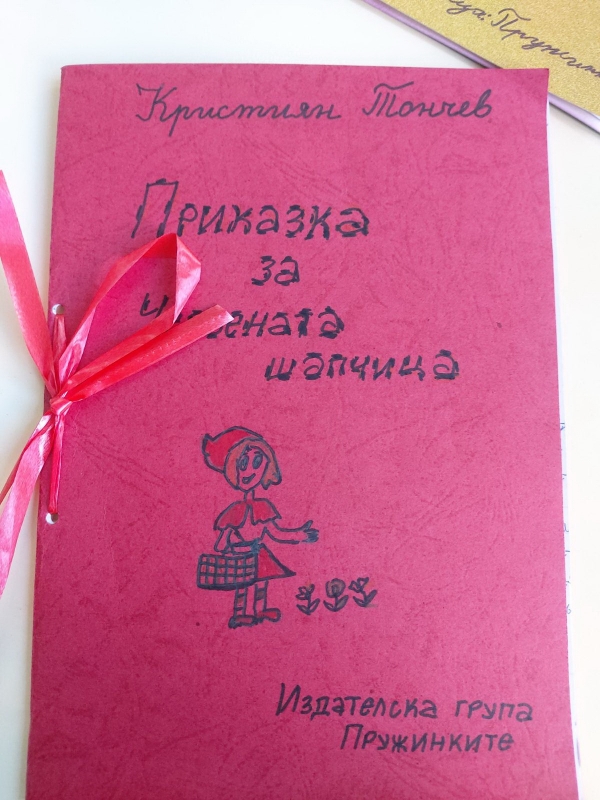 Кристиян Тончев
Приказка
за
шапчица
Издателска група
Пружинките